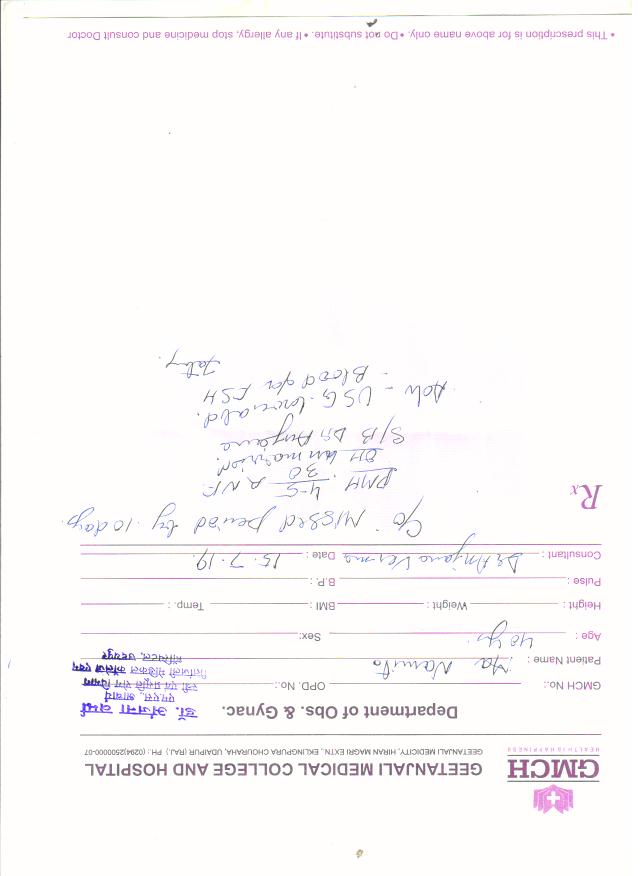 GMCH
HEALTH IS HAPPINESS
GEETANJALI MEDICAL COLLEGE AND HOSPITAL
GEETANJALI MEDICITY, HIRAN MAGRI EXTN., EKLINGPURA CHOURAHA, UDAIPUR (RAJ.) PH.: (0294)2500000-07
Department of Obs. & Gynac.
डॉ. अंजना वर्मा
एम.एस., आचार्य
स्त्री एवं प्रसूति रोग विभाग
गीतांजली मेडिकल कॉलेज एवम
हॉस्पिटल, उदयपुर
GMCH No.: OPD. No.:
Patient Name : Namita
Age : 40 yr. Sex:
Height : Weight : BMI : Temp. :
Pulse : B.P. :
Consultant : Dr Anjana Verma Date : 15.7.19.
Rx
C/o Missed period by 10 days.
PMH 4-5 R N F
30
OH Unmarried.
S/B Dr Anjana
Adv - USG lower abd.
- Blood for FSH
* This prescription is for above name only. * Do not substitute. * If any allergy, stop medicine and consult Doctor